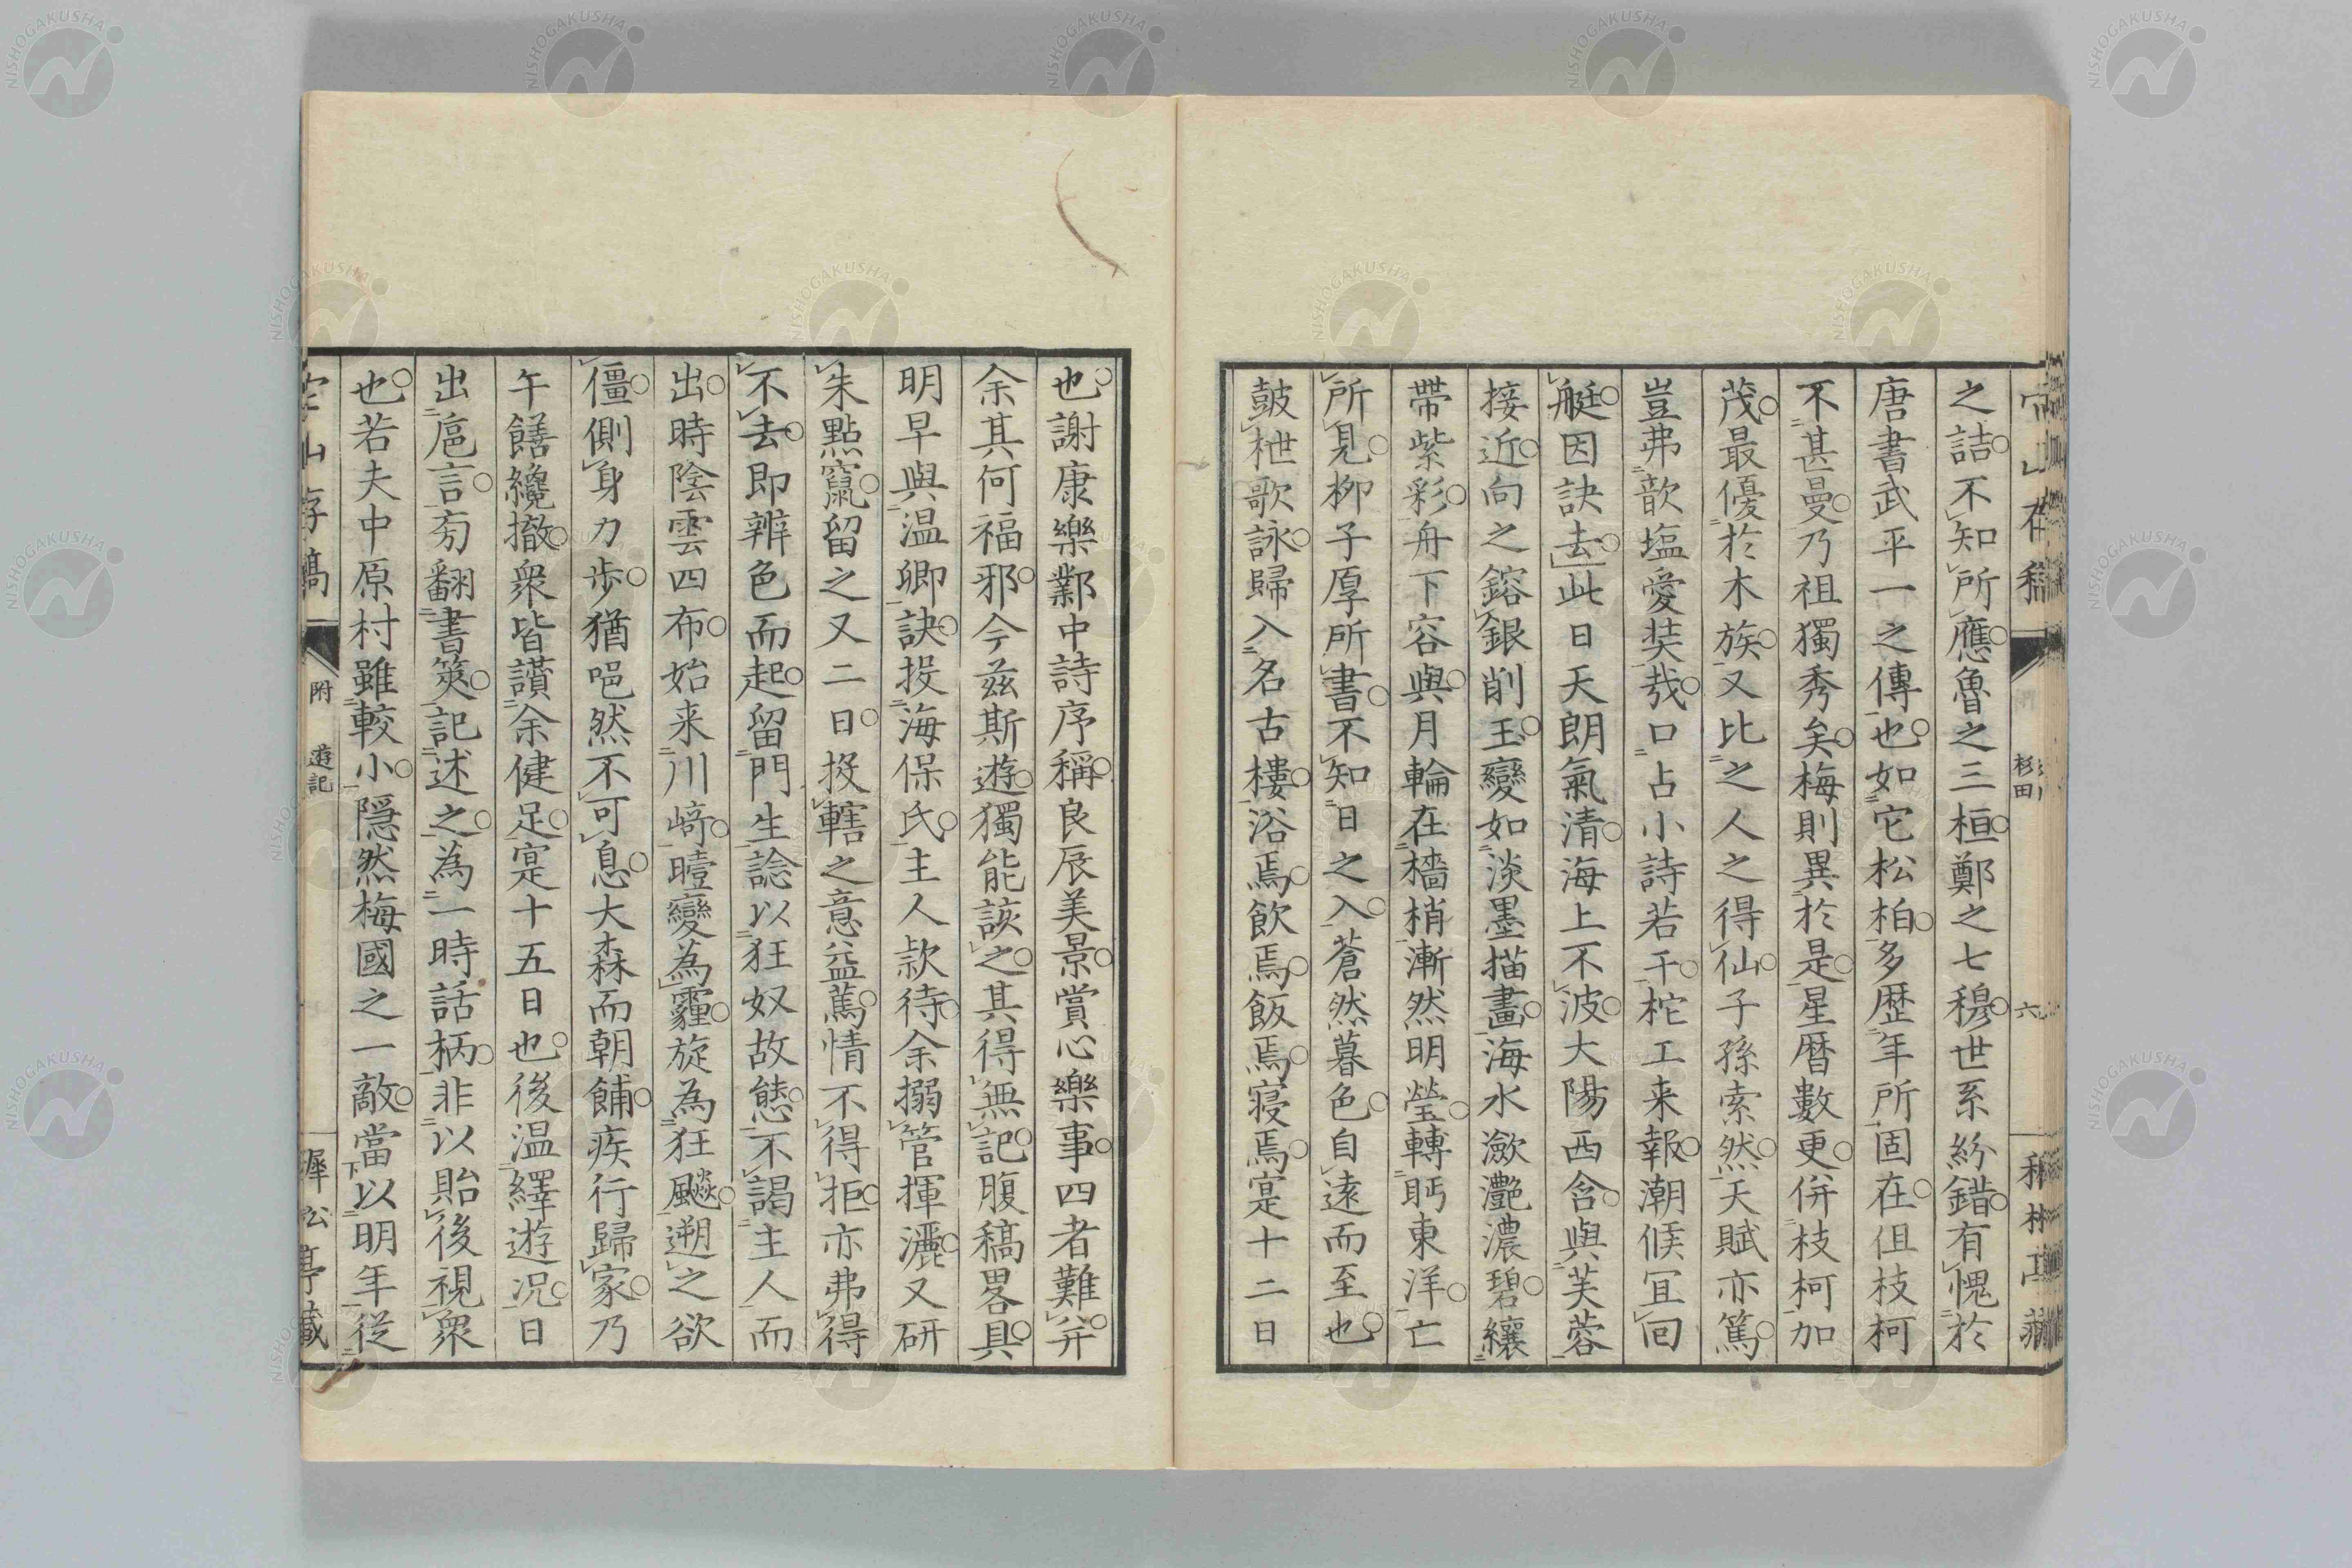 之詰不知所應魯之三桓鄭之七穆世系紛錯有愧於
唐書武平一之傳也如它松柏多歴年所固在但枝柯
不甚曼乃祖獨秀矣梅則異於是星暦數更併枝柯加
茂最優於木族又比之人之得仙子孫索然天賦亦篤
豈弗歆塩愛奘哉口占小詩若干柁工来報潮候宜回
艇因訣去此日天朗氣清海上不波大陽西含與芙蓉
接近向之鎔銀削玉變如淡墨描畫海水瀲灔濃碧纕
帶紫彩舟下容與月輪在檣梢漸然明瑩轉眄東洋亡
所見柳子厚所書不知日之入蒼然暮色自遠而至也
鼓枻歌詠歸入名古樓浴焉飲焉飯焉寢焉寔十二日
杉田
六
也謝康樂鄴中詩序稱良辰美景賞心樂事四者難并
余其何福邪今茲斯遊獨能該之其得無記腹稿畧具
明早與温卿訣投海保氏主人款待余搦管揮灑又研
朱點竄留之又二日投轄之意益篤情不得拒亦弗得
不去即辨色而起留門生諗以狂奴故態不謁主人而
出時陰雲四布始来川﨑曀變為霾旋為狂飈遡之欲
僵側身力步猶唈然不可息大森而朝餔疾行歸家乃
午饍纔撤衆皆讃余健足寔十五日也後温繹遊况日
出巵言旁翻書筴記述之為一時話柄非以貽後視衆
也若夫中原村雖較小隠然梅國之一敵當以明年従
附
遊記